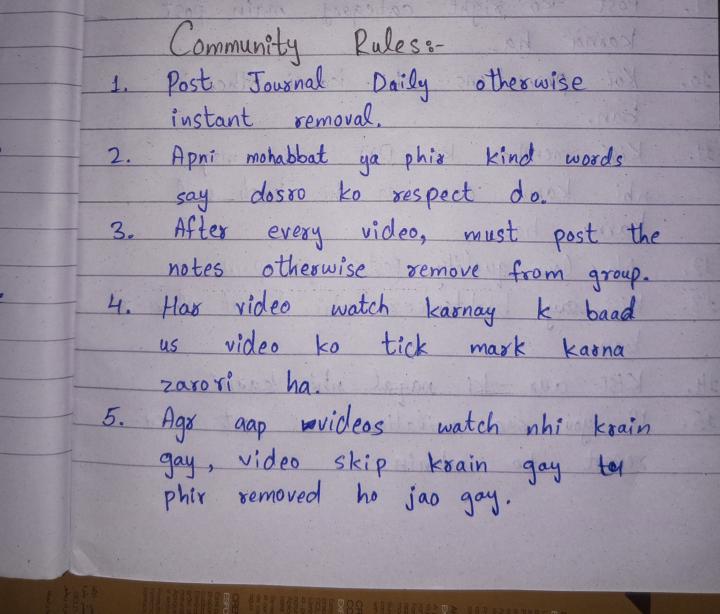 Community Rules:-
1. Post Journal Daily otherwise
instant removal.
2. Apni mohabbat ya phir kind words
say dosro ko respect do.
3. After every video, must post the
notes otherwise remove from group.
4. Har video watch karnay k baad
us video ko tick mark karna
zarori ha.
5. Agr aap videos watch nhi krain
gay, video skip krain gay
phir removed ho jao gay.